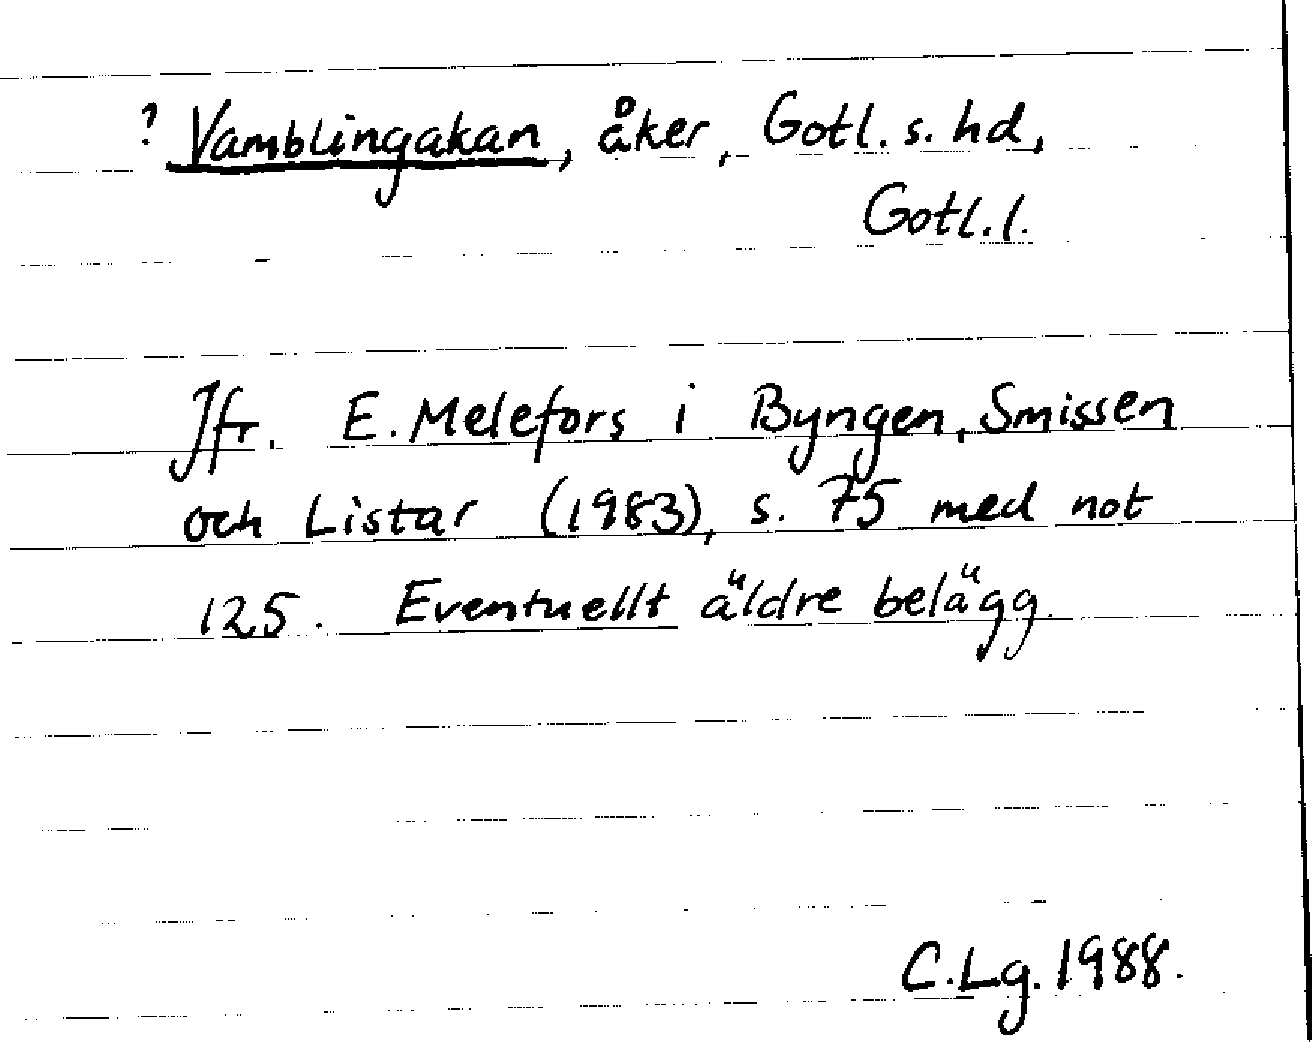 ? Vamblingakan, åker, Gotl. s. hd,
Gotl. l.
Jfr. E. Melefors i Byngen, Smissen
och Listar (1983), s. 75 med not
125. Eventuellt äldre belägg.
C. Lg. 1988.